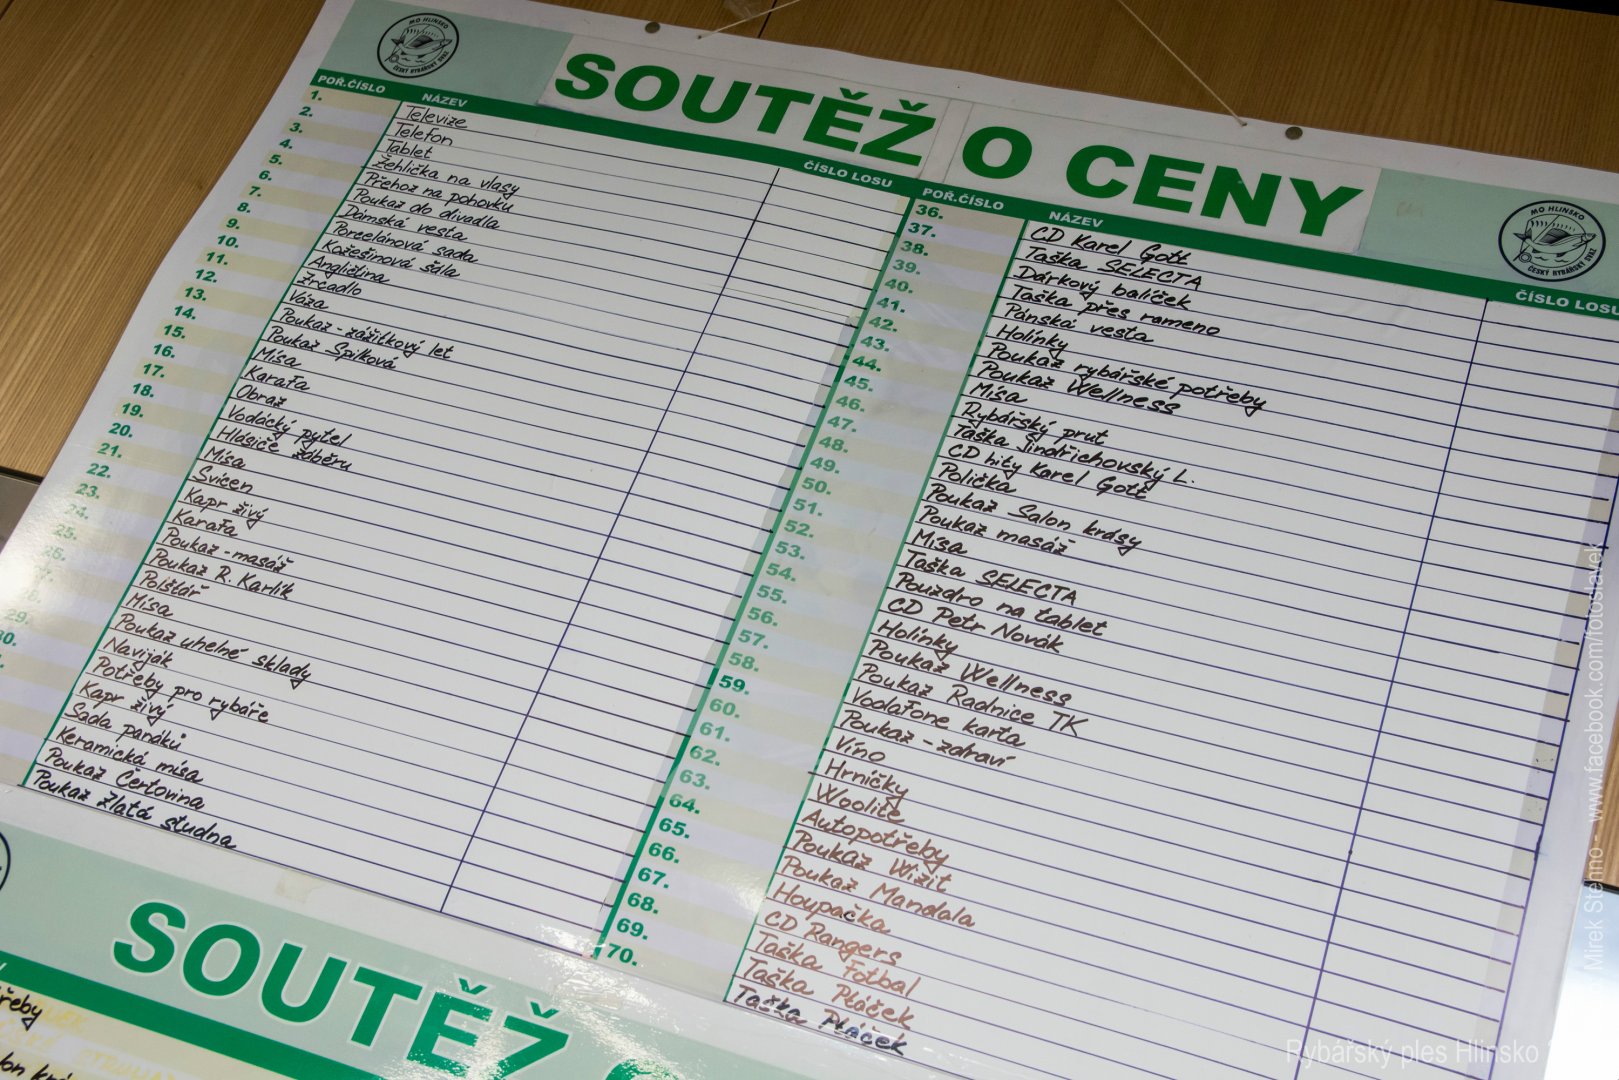 MO HLINSKO
ČESKÝ RYBÁŘSKÝ SVAZ
SOUTĚŽ O CENY
MO HLINSKO
ČESKÝ RYBÁŘSKÝ SVAZ
POŘ.ČÍSLO NÁZEV ČÍSLO LOSU
1. Televize
2. Telefon
3. Tablet
4. Žehlička na vlasy
5. Přehoz na pohovku
6. Poukaz do divadla
7. Dámská vesta
8. Porcelánová sada
9. Kožešinová šála
10. Angličtina
11. Zrcadlo
12. Váza
13. Poukaz - zážitkový let
14. Poukaz Spilková
15. Mísa
16. Karafa
17. Obraz
18. Vodácký pytel
19. Hlásiče záběru
20. Mísa
21. Svícen
22. Kapr živý
23. Karafa
24. Poukaz - masáž
25. Poukaz R. Karlík
26. Polštář
Mísa
28. Poukaz uhelné sklady
29. Naviják
30. Potřeby pro rybáře
Kapr živý
Sada panáků
Keramická mísa
Poukaz Čertovina
Poukaz Zlatá studna
POŘ.ČÍSLO NÁZEV ČÍSLO LOSU
36. CD Karel Gott
37. Taška SELECTA
38. Dárkový balíček
39. Taška přes rameno
40. Pánská vesta
41. Holínky
42. Poukaz rybářské potřeby
43. Poukaz Wellness
44. Mísa
45. Rybářský prut
46. Taška Jindřichovský L.
47. CD hity Karel Gott
48. Polička
49. Poukaz Salon krásy
50. Poukaz masáž
51. Mísa
52. Taška SELECTA
53. Pouzdro na tablet
54. CD Petr Novák
55. Holínky
56. Poukaz Wellness
57. Poukaz Radnice TK
58. Vodafone karta
59. Poukaz - zdraví
60. Víno
61. Hrníčky
62. Woolite
63. Autopotřeby
64. Poukaz Wizit
65. Poukaz Mandala
66. Houpačka
67. CD Rangers
68. Taška Fotbal
69. Taška Ptáček
70. Taška Ptáček
SOUTĚŽ
Mirek Stehno - www.facebook.com/fotoslavek
Rybářský ples Hlinsko